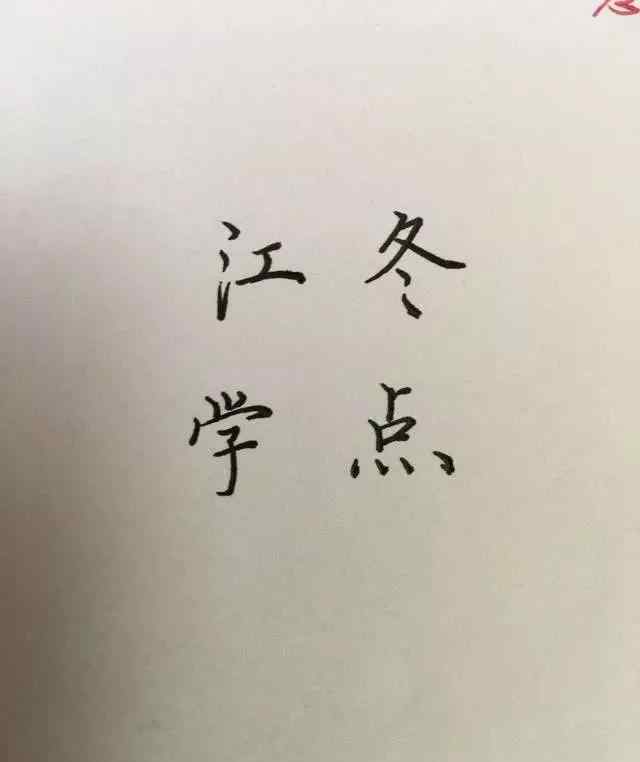 江冬
学点